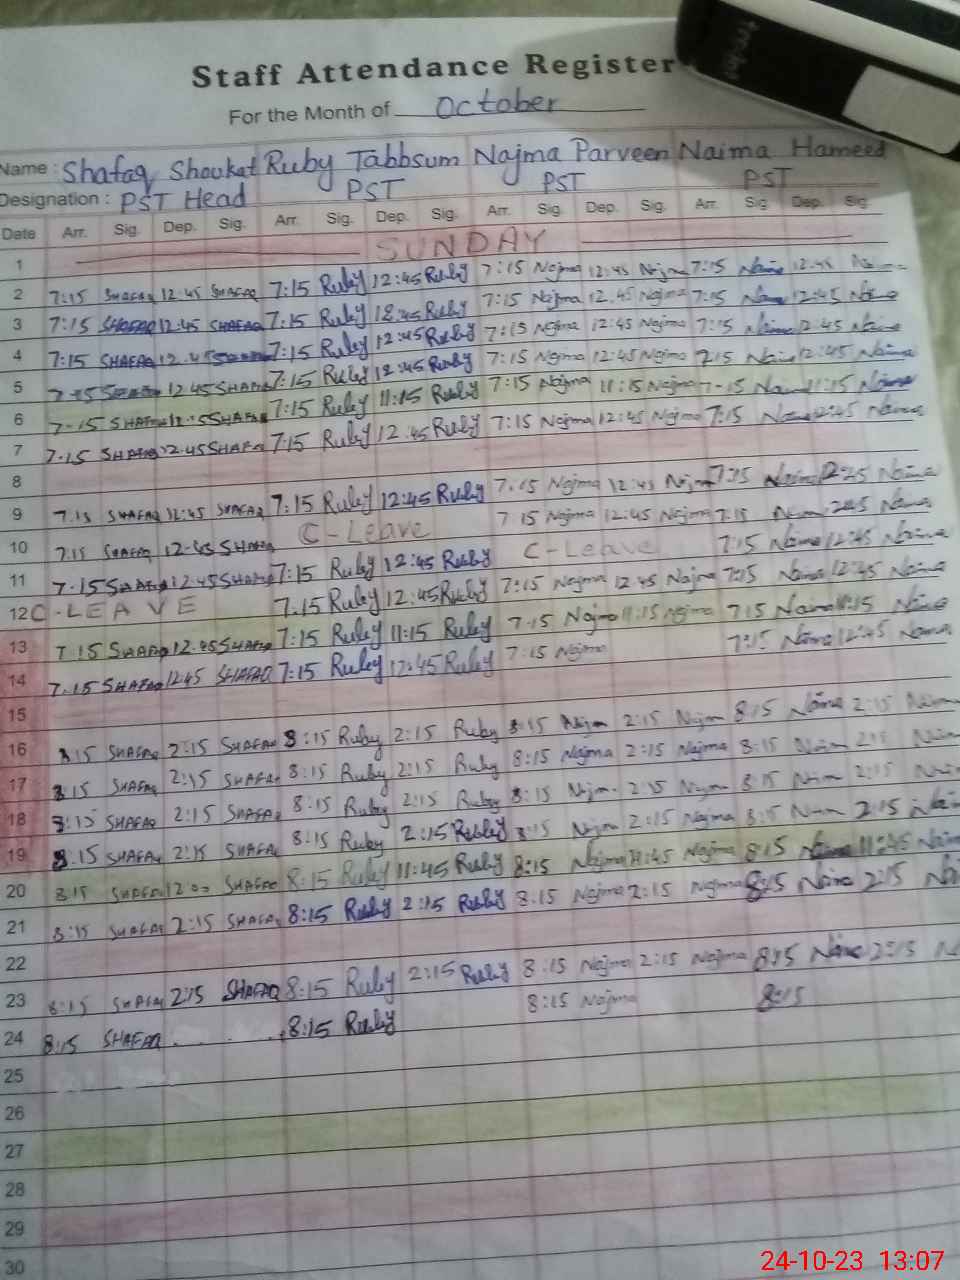 Staff Attendance Register
For the Month of October
Name : Shafaq Shoukat Ruby Tabbsum Najma Parveen Naima Hameed
Designation : PST Head PST PST PST
Date Arr. Sig. Dep. Sig. Arr. Sig. Dep. Sig. Arr. Sig. Dep. Sig. Arr. Sig. Dep. Sig.
1 SUNDAY
2 7:15 SHAFAQ 12:45 SHAFAQ 7:15 Ruby 12:45 Ruby 7:15 Najma 12:45 Najma 7:15 Naima 12:45
3 7:15 SHAFAQ 12:45 SHAFAQ 7:15 Ruby 12:45 Ruby 7:15 Najma 12:45 Najma 7:15 Naima 12:45 Naima
4 7:15 SHAFAQ 7:15 Ruby 12:45 Ruby 7:15 Najma 12:45 Najma 7:15 Naima 12:45 Naima
5 7-15 12 45 SHAFAQ 7:15 Ruby 12:45 Ruby 7:15 Najma 12:45 Najma 7:15 Naima 12:45 Naima
6 7-15 SHAFAQ 11:15 SHAFAQ 7:15 Ruby 11:15 Ruby 7:15 Najma 11:15 Najma 7-15 Naima 11:15 Naima
7 7.15 SHAFAQ 12.45 SHAFAQ 7:15 Ruby 12:45 Ruby 7:15 Najma 12:45 Najma 7:15 Naima 12:45 Naima
8
9 7.15 SHAFAQ 12:45 SHAFAQ 7:15 Ruby 12:45 Ruby 7:15 Najma 12:45 Najma 7:15 Naima 12:45 Naima
10 7:15 SHAFAQ 12-45 SHAFAQ C-Leave 7 15 Najma 12:45 Najma 7:15 Naima
11 7-15 SHAFAQ 12.45 SHAFAQ 7:15 Ruby 12:45 Ruby C-Leave 7:15 Naima 12:45 Naima
12 C-LEAVE 7.15 Ruby 12:45 Ruby 7:15 Najma 12 45 Najma 7:15 Naima 12:45 Naima
13 7 15 SHAFAQ 12.45 SHAFAQ 7:15 Ruby 11:15 Ruby 7:15 Najma 11:15 Najma 7:15 Naima 11:15 Naima
14 7-15 SHAFAQ 12 45 SHAFAQ 7:15 Ruby 12:45 Ruby 7:15 Najma 7:15 Naima 12:45 Naima
15
16 8:15 SHAFAQ 2:15 SHAFAQ 8:15 Ruby 2:15 Ruby 8:15 Najm 2:15 Najm 8:15 Naima 2:15 Naima
17 8:15 SHAFAQ 2:15 SHAFAQ 8:15 Ruby 2:15 Ruby 8:15 Najma 2:15 Najma 8:15 Naim 2:15
18 8:15 SHAFAQ 2:15 SHAFAQ 8:15 Ruby 2:15 Ruby 8:15 Najm 2:15 Najm 8:15 Naim 2:15
19 8:15 SHAFAQ 2:15 SHAFAQ 8:15 Ruby 2:15 Ruby 8:15 Najm 2:15 Najma 8:15 Naim 2:15
20 8:15 SHAFAQ 12:00 SHAFAQ 8:15 Ruby 11:45 Ruby 8:15 Najma 11:45 Najma 8:15 11:45
21 8:15 SHAFAQ 2:15 SHAFAQ 8:15 Ruby 2:15 Ruby 8:15 Najma 2:15 Najma 8:15 Naima 2:15
22
23 8:15 SHAFAQ 2:15 SHAFAQ 8:15 Ruby 2:15 Ruby 8:15 Najma 2:15 Najma 8:15 Naima 2:15
24 8:15 SHAFAQ 8:15 Ruby 8:15 Najma 8:15
25
26
27
28
29
30
24-10-23 13:07